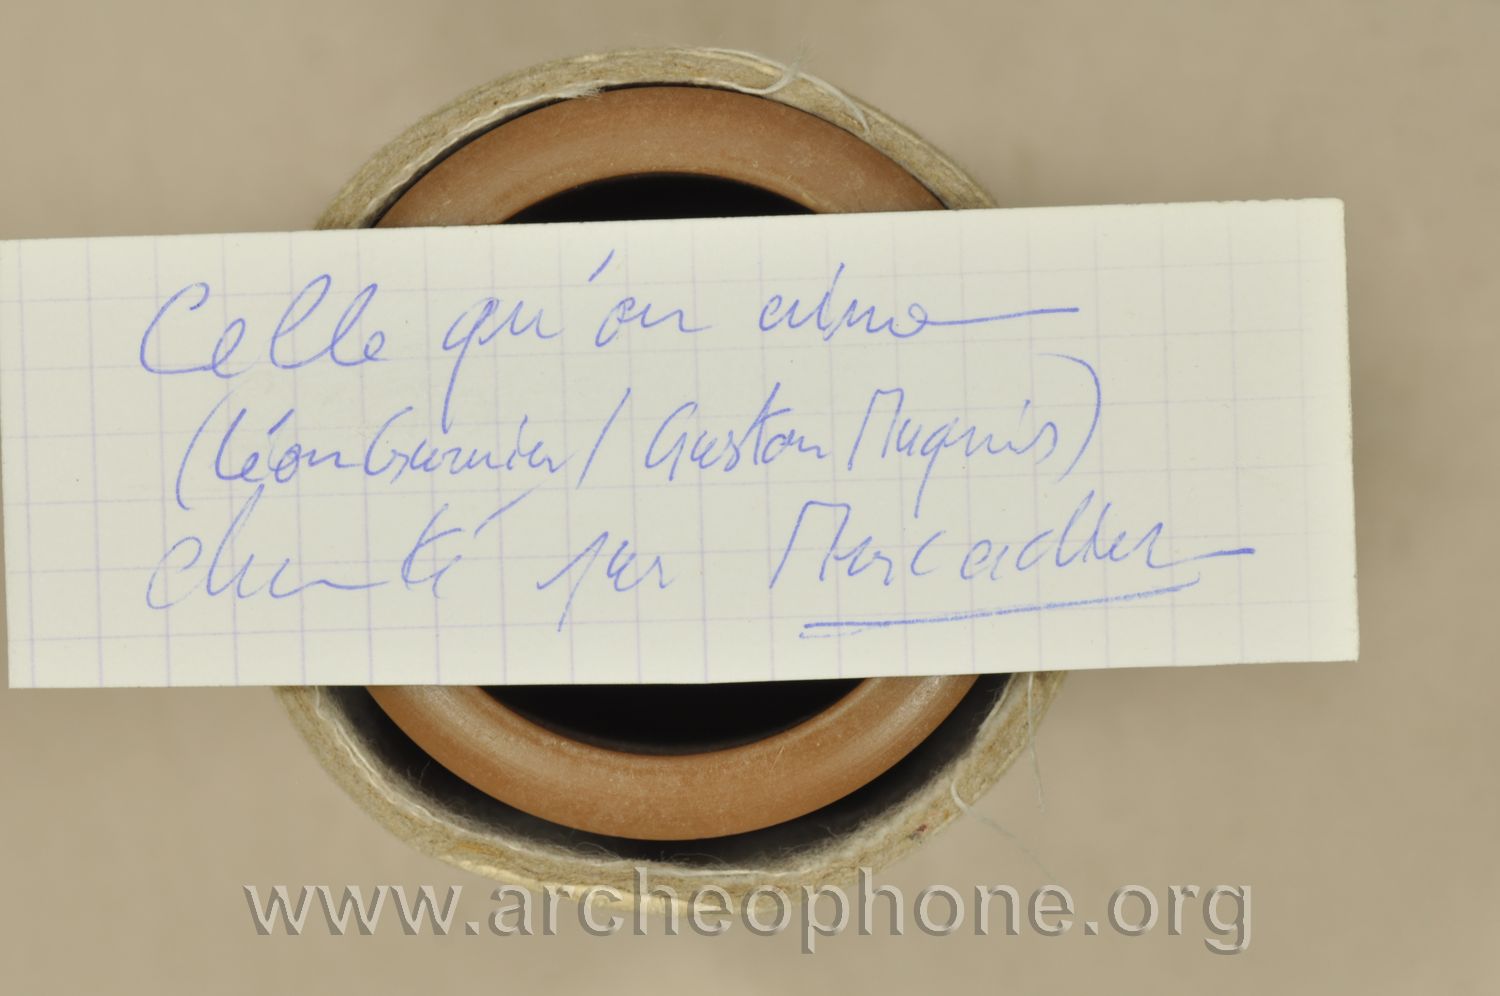 Celle qu'on aime
(Léon Garnier / Gaston Maquis)
chanté par Mercadier
www.archeophone.org